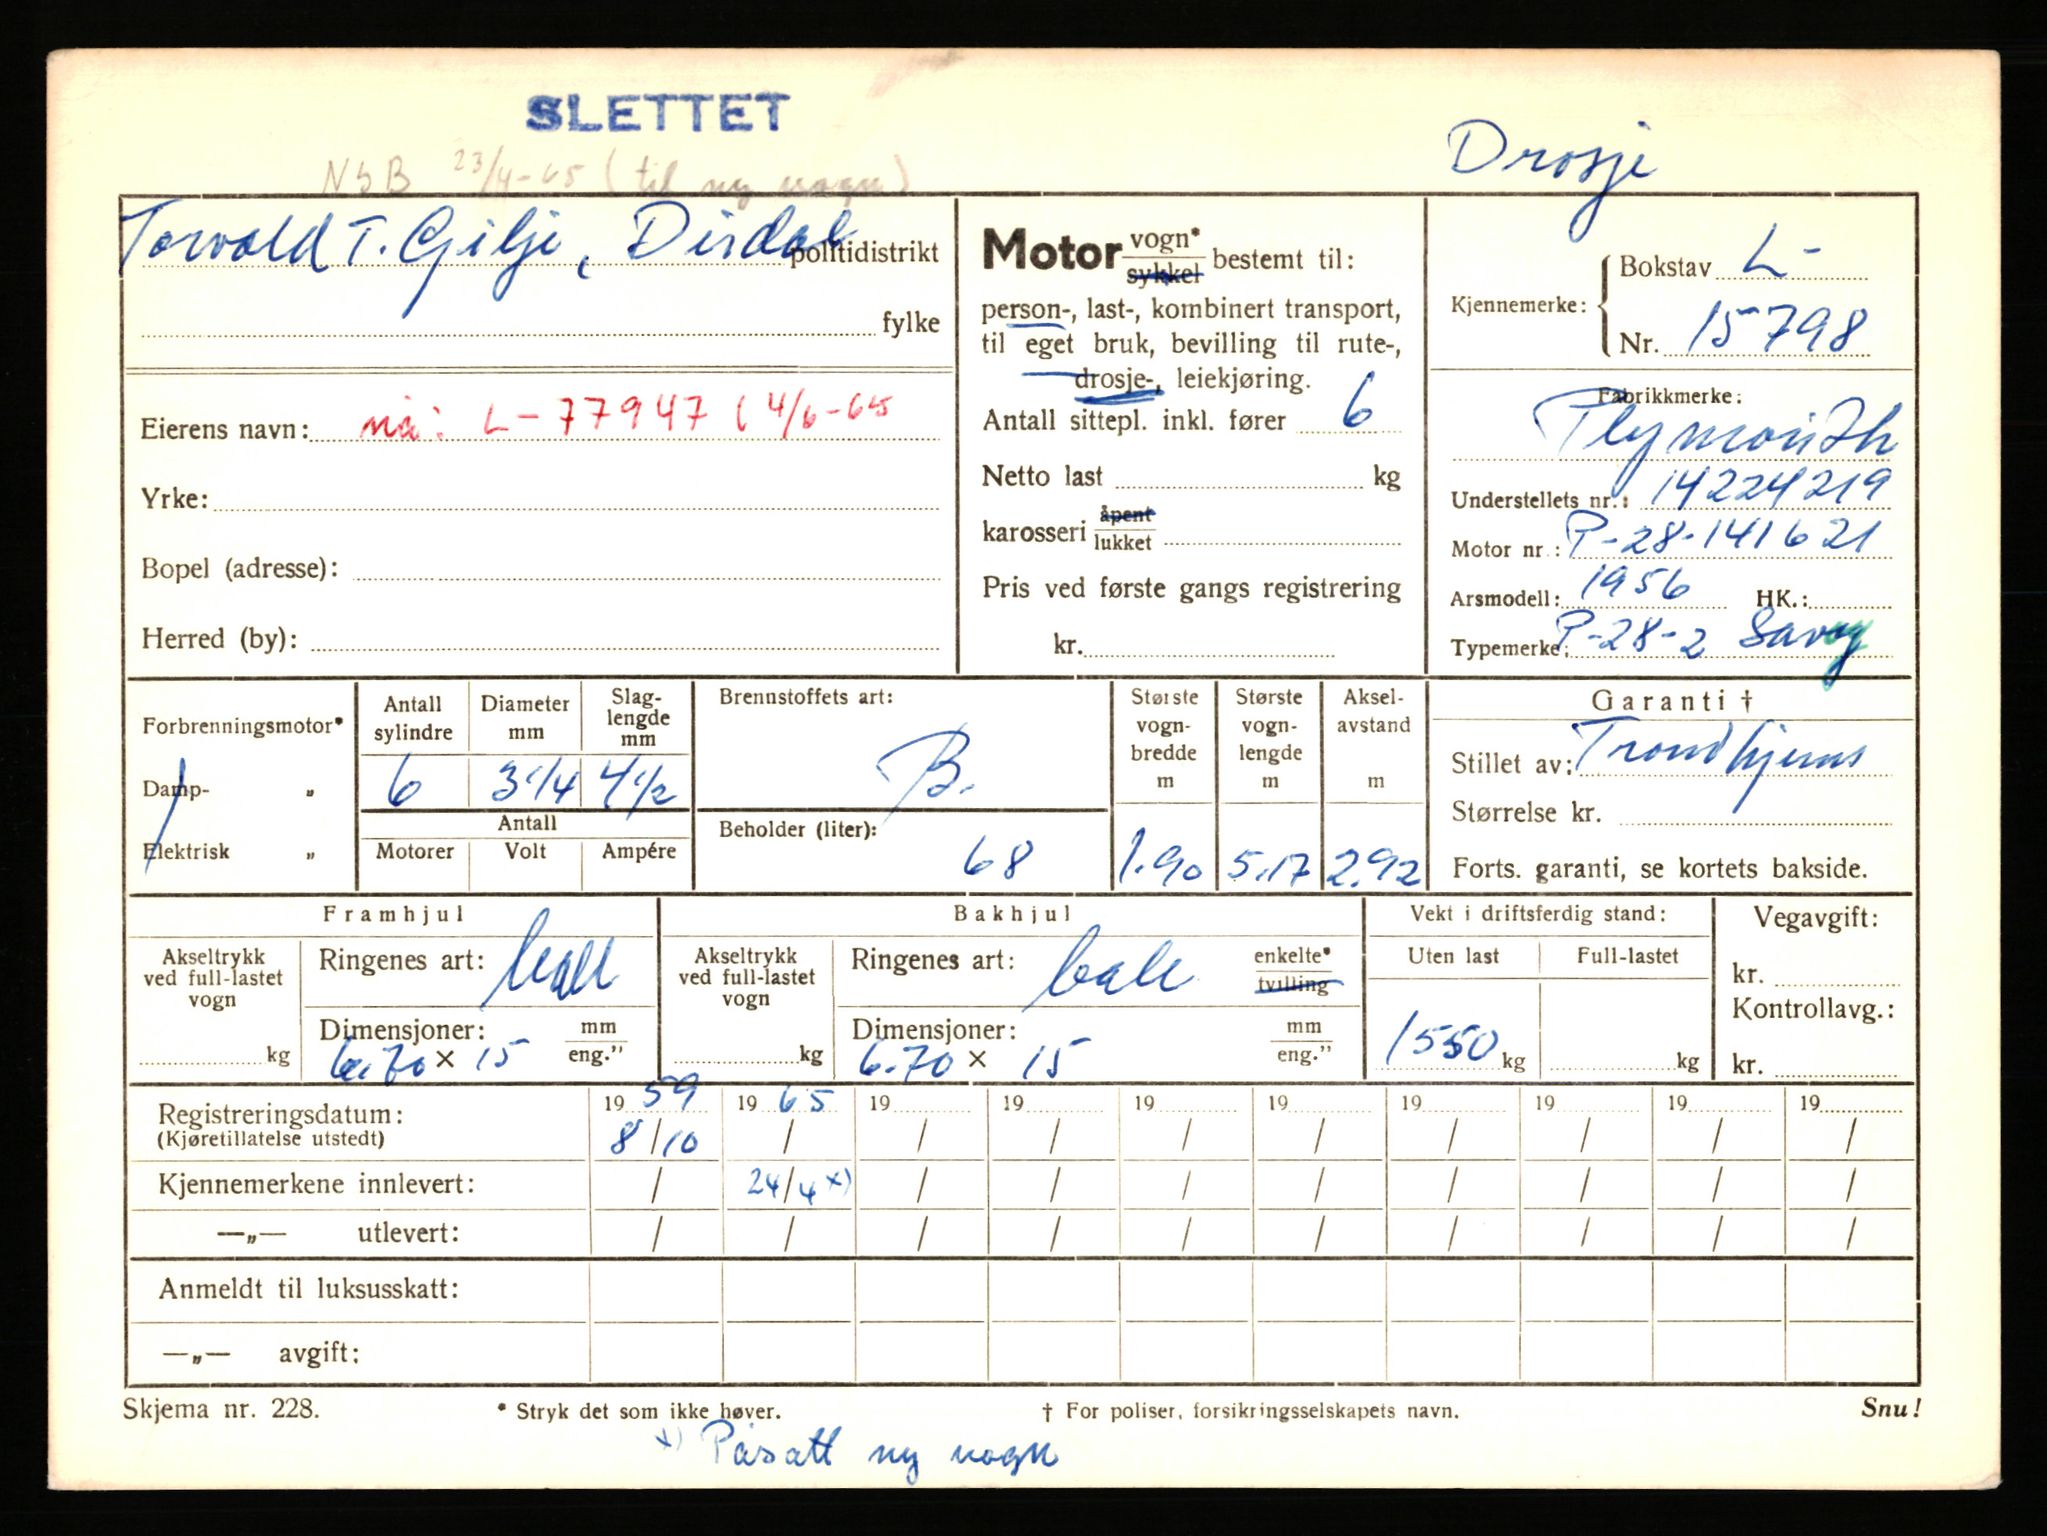 SLETTET
NSB 23/4-65 (til ny vogn)
Drosje
Torvald T. Gilje, Dirdal politidistrikt
fylke
Eierens navn: nå: L-77947 (4/6-65
Yrke:
Bopel (adresse):
Herred (by):
Motor vogn* sykkel bestemt til:
person-, last-, kombinert transport,
til eget bruk, bevilling til rute-,
drosje-, leiekjøring.
Antall sittepl. inkl. fører 6
Netto last kg
karosseri åpent lukket
Pris ved første gangs registrering
kr.
Kjennemerke: Bokstav L-
Nr. 15798
Fabrikkmerke:
Plymouth
Understellets nr.: 14224219
Motor nr.: P-28-141621
Arsmodell: 1956 HK.:
Typemerke: P-28-2 Savoy
Forbrenningsmotor*
Damp- "
Elektrisk "
Antall sylindre
Diameter mm
Slag-lengde mm
6 3 1/4 4 1/2
Antall
Motorer Volt Ampére
Brennstoffets art:
B.
Beholder (liter):
68
Største vogn-bredde m
1.90
Største vogn-lengde m
5.17
Aksel-avstand m
2.92
Garanti †
Stillet av: Trondhjems
Størrelse kr.
Forts. garanti, se kortets bakside.
Framhjul
Akseltrykk ved full-lastet vogn
kg
Ringenes art:
Dimensjoner: mm eng."
6.70 × 15
Bakhjul
Akseltrykk ved full-lastet vogn
kg
Ringenes art: enkelte* tvilling
Dimensjoner: mm eng."
6.70 × 15
Vekt i driftsferdig stand:
Uten last Full-lastet
1550 kg kg
Vegavgift:
kr.
Kontrollavg.:
kr.
Registreringsdatum: 19 59 19 65 19 19 19 19 19 19 19 19
(Kjøretillatelse utstedt) 8/10 / / / / / / / / /
Kjennemerkene innlevert: / 24/4 x) / / / / / / / /
—„— utlevert: / / / / / / / / / /
Anmeldt til luksusskatt:
—„— avgift:
Skjema nr. 228. * Stryk det som ikke høver. † For poliser, forsikringsselskapets navn. Snu!
x) Påsatt ny vogn